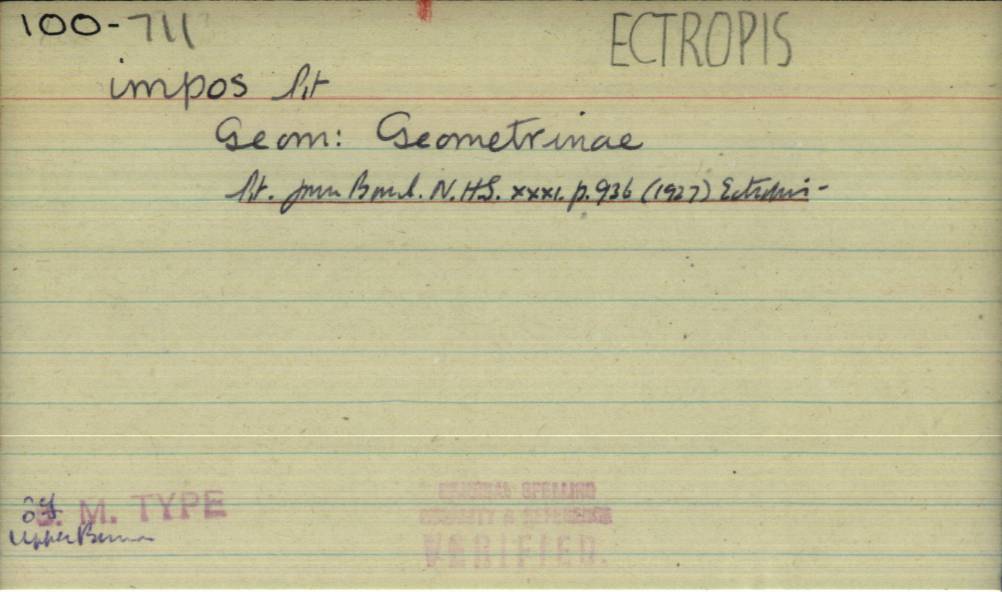 100-711
ECTROPIS
impos
Geom: Geometrinae
Journ Bomb. N.H.S. xxxi. p. 936 (1927) Ectropis -
M. TYPE
Upper Burma
ORIGINAL SPELLING
& REFERENCE
VERIFIED.